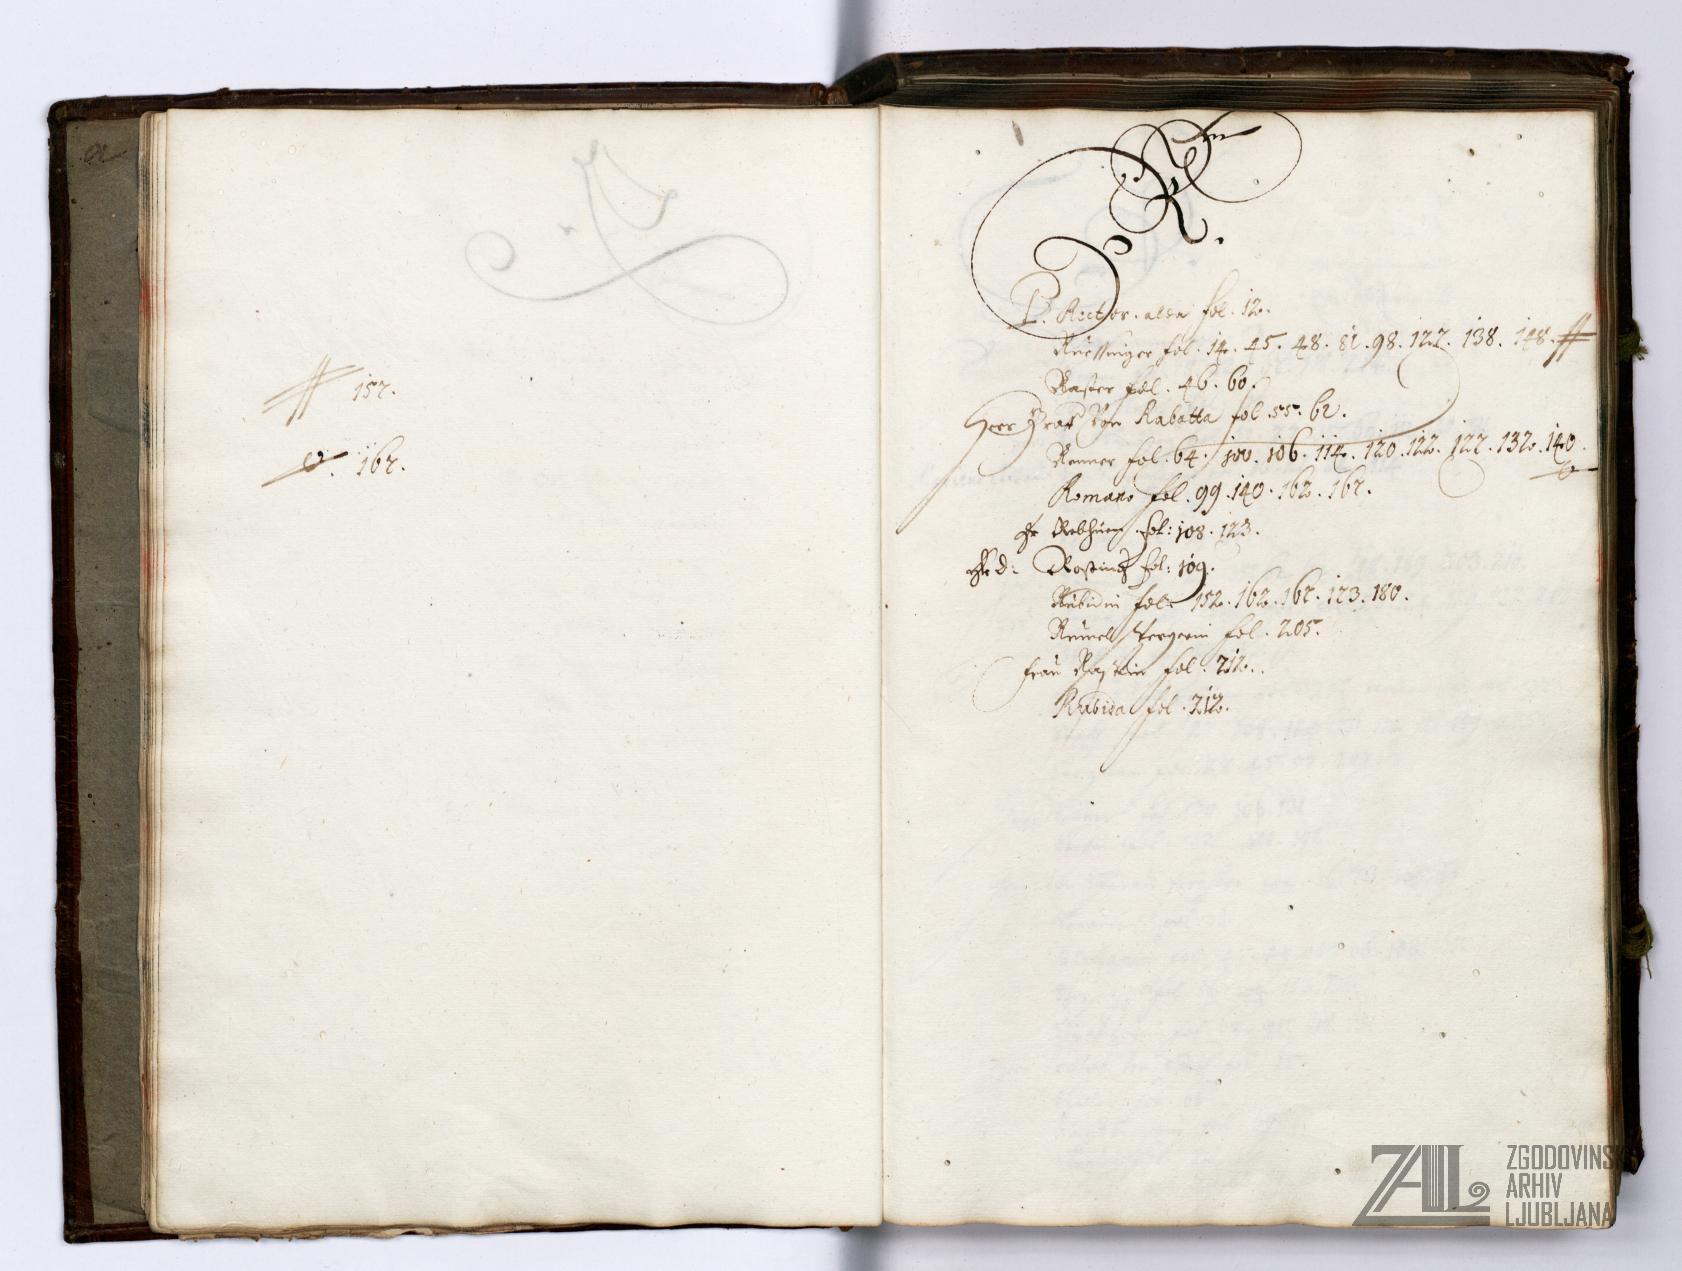 a
# 157.
162.
R.
P. Rector. alda fol. 12.
fol. 14. 45. 48. 81. 98. 127. 138. 148. #
Raster fol. 46. 60.
Herr Graf Von Rabatta fol. 55. 62.
Renner fol. 64. 100. 106. 114. 120. 122. 127. 132. 140.
Romano fol. 99. 140. 162. 167.
fol: 108. 123.
fol: 109.
fol. 152. 162. 167. 173. 180.
fol. 205.
frau fol. 212.
Rubida fol. 212.
ZAL
ZGODOVINSKI
ARHIV
LJUBLJANA